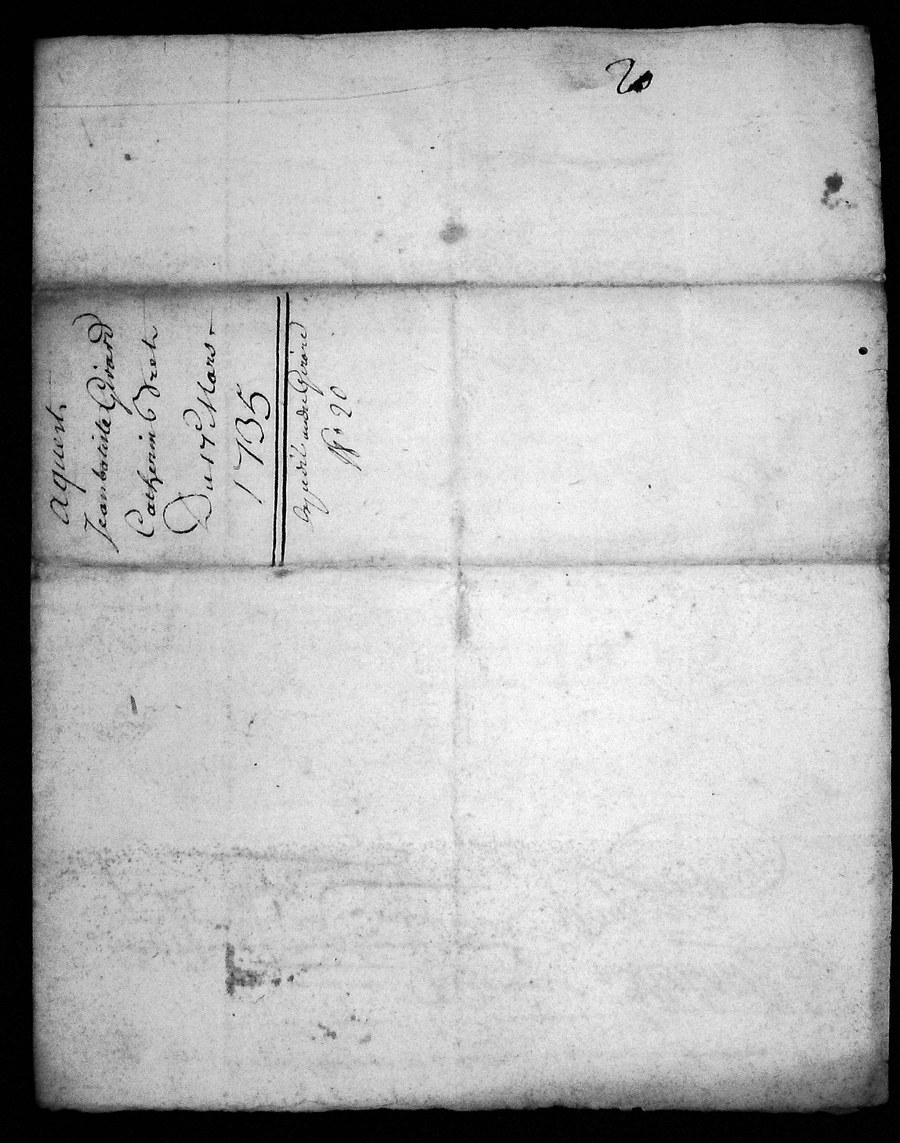 20
Aquest.
Jean batiste Girard
Catherin
Du 17e Mars
1735
Girard
No 20